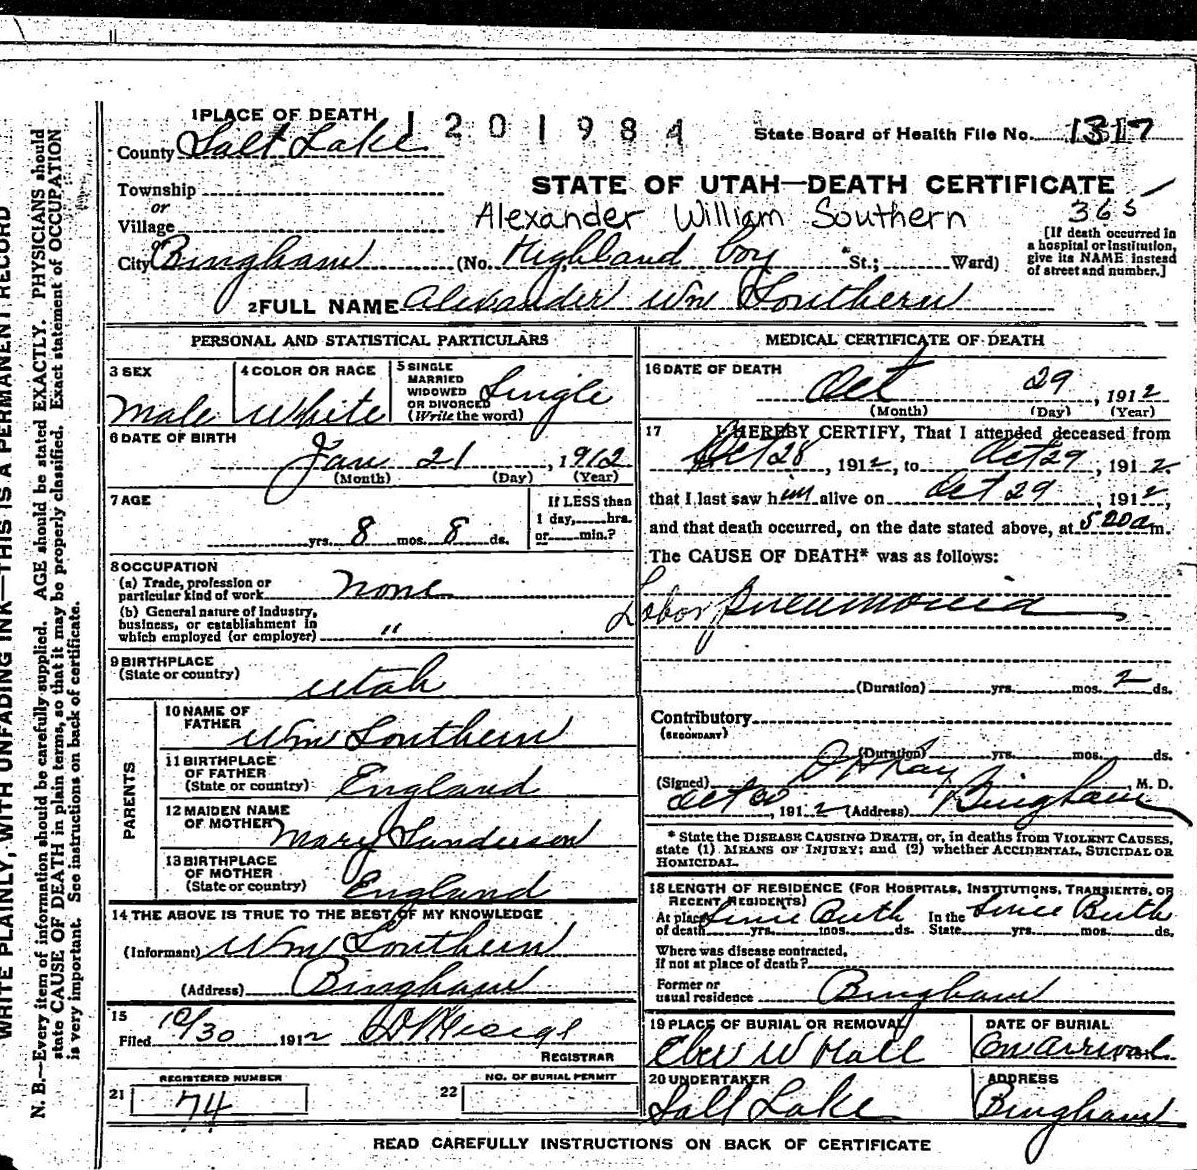 1 PLACE OF DEATH
1201984
State Board of Health File No. 1317
County Salt Lake
Township
STATE OF UTAH—DEATH CERTIFICATE
or
Village
Alexander William Southern
365
[If death occurred in a hospital or institution, give its NAME instead of street and number.]
City Bingham (No. Highland boy St.; Ward)
2 FULL NAME Alexander Wm Southern
PERSONAL AND STATISTICAL PARTICULARS
3 SEX
Male
4 COLOR OR RACE
White
5 SINGLE
MARRIED
WIDOWED
OR DIVORCED
(Write the word)
Single
6 DATE OF BIRTH
Jan 21, 1912
(Month) (Day) (Year)
7 AGE
yrs. 8 mos. 8 ds.
If LESS than
1 day, hrs.
or min.?
8 OCCUPATION
(a) Trade, profession or
particular kind of work none
(b) General nature of industry,
business, or establishment in
which employed (or employer) "
9 BIRTHPLACE
(State or country)
Utah
PARENTS
10 NAME OF
FATHER
Wm Southern
11 BIRTHPLACE
OF FATHER
(State or country)
England
12 MAIDEN NAME
OF MOTHER
Mary Sanderson
13 BIRTHPLACE
OF MOTHER
(State or country)
England
14 THE ABOVE IS TRUE TO THE BEST OF MY KNOWLEDGE
(Informant) Wm Southern
(Address) Bingham
15
Filed 10/30 1912
REGISTRAR
REGISTERED NUMBER
21 74
NO. OF BURIAL PERMIT
22
MEDICAL CERTIFICATE OF DEATH
16 DATE OF DEATH
Oct 29, 1912
(Month) (Day) (Year)
17 I HEREBY CERTIFY, That I attended deceased from
Oct 28, 1912, to Oct 29, 1912
that I last saw him alive on Oct 29, 1912,
and that death occurred, on the date stated above, at 520 a m.
The CAUSE OF DEATH* was as follows:
Lobar Pneumonia
(Duration) yrs. mos. 2 ds.
Contributory
(SECONDARY)
(Duration) yrs. mos. ds.
(Signed) M. D.
Oct 30, 1912 (Address) Bingham
* State the DISEASE CAUSING DEATH, or, in deaths from VIOLENT CAUSES,
state (1) MEANS OF INJURY; and (2) whether ACCIDENTAL, SUICIDAL OR
HOMICIDAL.
18 LENGTH OF RESIDENCE (FOR HOSPITALS, INSTITUTIONS, TRANSIENTS, OR
RECENT RESIDENTS)
At place Since Birth In the Since Birth
of death yrs. mos. ds. State yrs. mos. ds.
Where was disease contracted,
if not at place of death?
Former or
usual residence Bingham
19 PLACE OF BURIAL OR REMOVAL
Eber W Hall
DATE OF BURIAL
On arrival
20 UNDERTAKER
Salt Lake
ADDRESS
Bingham
READ CAREFULLY INSTRUCTIONS ON BACK OF CERTIFICATE
WRITE PLAINLY, WITH UNFADING INK—THIS IS A PERMANENT RECORD
N. B.—Every item of information should be carefully supplied. AGE should be stated EXACTLY. PHYSICIANS should
state CAUSE OF DEATH in plain terms, so that it may be properly classified. Exact statement of OCCUPATION
is very important. See instructions on back of certificate.